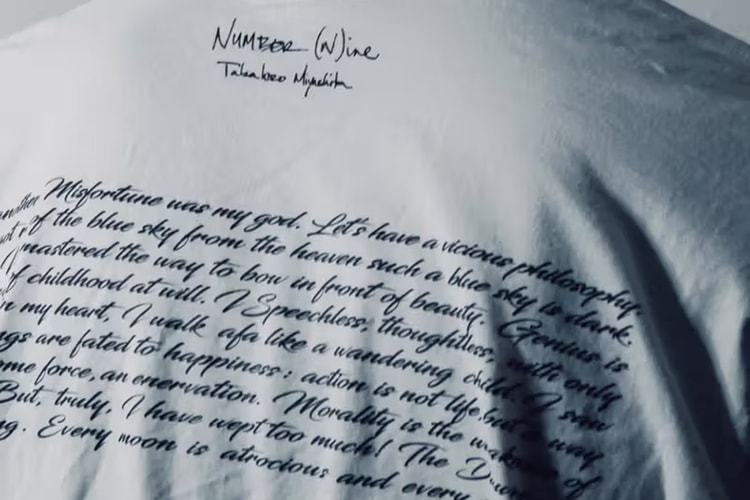 NUMBER (N)ine
Takahiro Miyashita
Misfortune was my god. Let's have a vicious philosophy.
of the blue sky from the heaven such a blue sky is dark.
I mastered the way to bow in front of beauty. Genius is
of childhood at will. I Speechless, thoughtless, with only
my heart, I walk afa like a wandering child. I saw
are fated to happiness: action is not life, but a way
me force, an enervation. Morality is the of
But, truly, I have wept too much! The
Every moon is atrocious and every